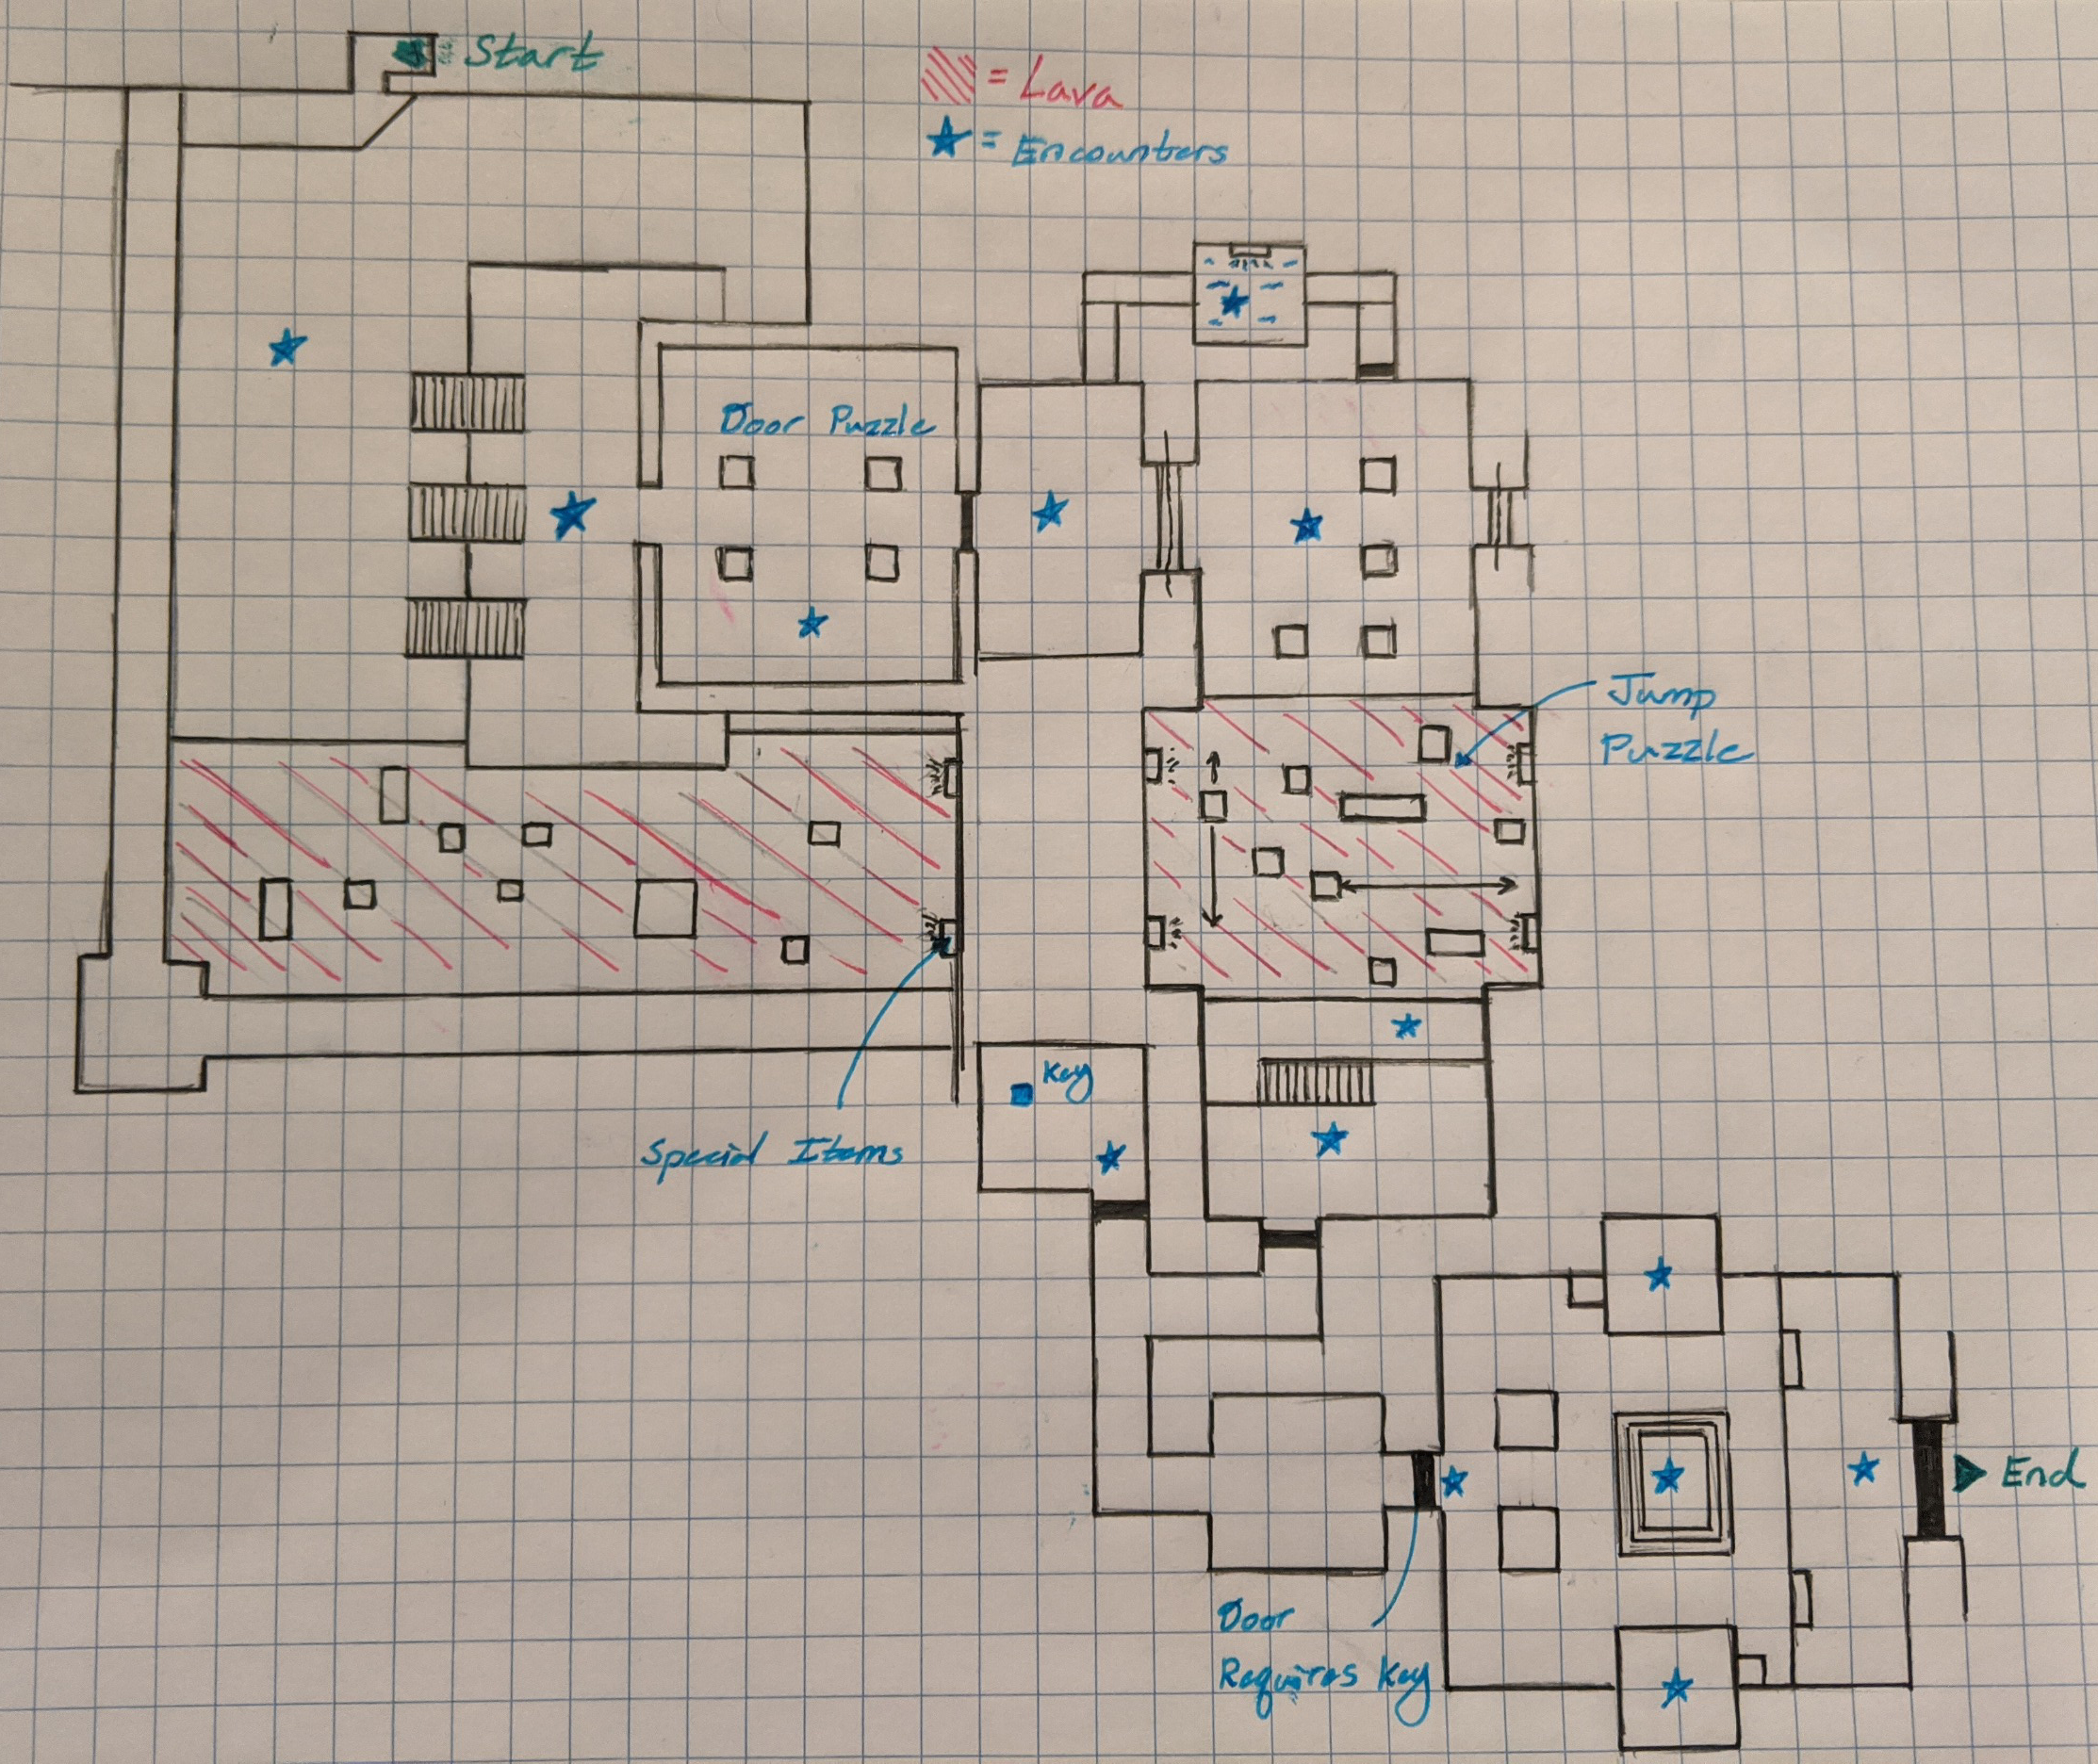 Start
= Lava
= Encounters
Door Puzzle
Jump
Puzzle
Key
Special Items
End
Door
Requires Key